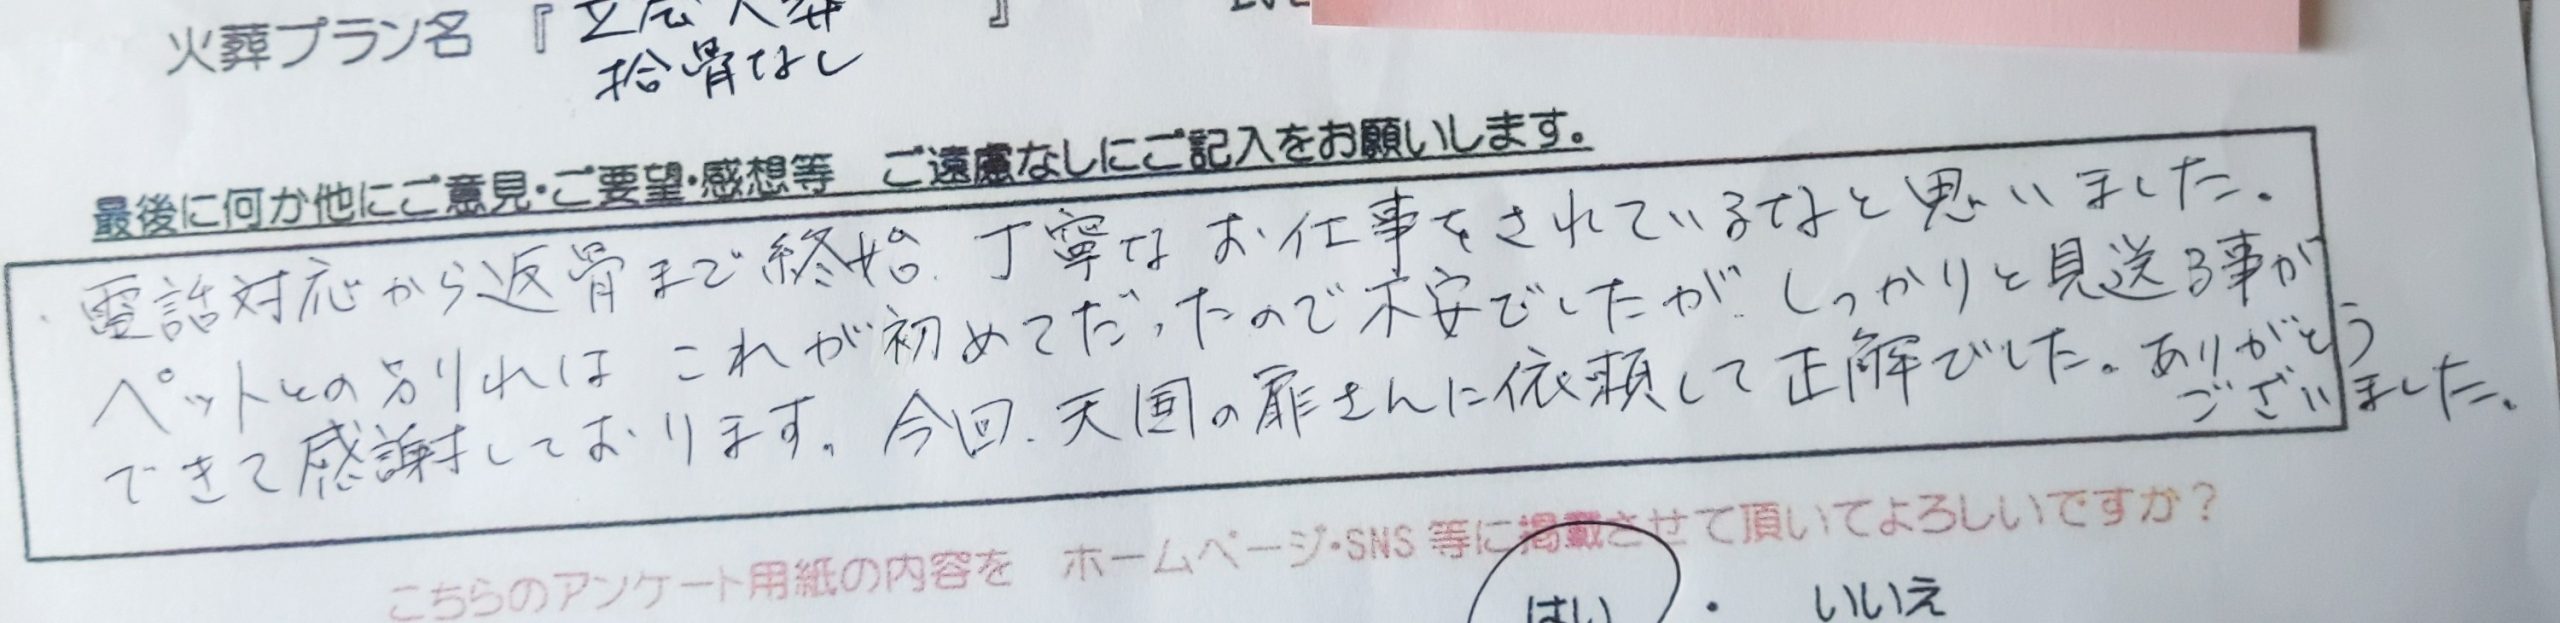 火葬プラン名 『立会火葬 』
拾骨なし
最後に何か他にご意見・ご要望・感想等 ご遠慮なしにご記入をお願いします。
電話対応から返骨まで終始、丁寧なお仕事をされているなと思いました。
ペットとの別れは これが初めてだったので不安でしたが、しっかりと見送る事が
できて感謝しております。今回、天国の扉さんに依頼して正解でした。ありがとう
ございました。
こちらのアンケート用紙の内容を ホームページ・SNS 等に掲載させて頂いてよろしいですか?
はい ・ いいえ